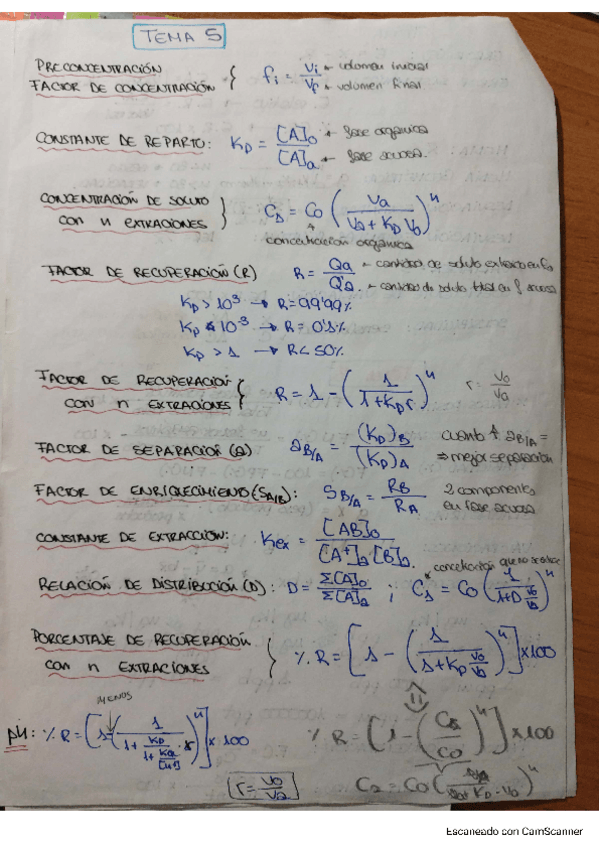 TEMA 5
PRECONCENTRACIÓN
FACTOR DE CONCENTRACIÓN { fi = Vi / Vf ← volumen inicial ← volumen final
CONSTANTE DE REPARTO: KD = [A]o / [A]a ← fase orgánica ← fase acuosa.
CONCENTRACIÓN DE SOLUTO
CON n EXTRACIONES } C1 = Co ( Va / Va + KD Vo )^n
concentración orgánica
FACTOR DE RECUPERACIÓN (R) R = Qa / Qa. ← cantidad de soluto ← cantidad de soluto total en f acuosa
KD > 10³ → R = 99'99%
KD 10³ → R = 0'1%
KD > 1 → R < 50%
FACTOR DE RECUPERACIÓN
CON n EXTRACIONES { R = 1 - ( 1 / 1 + KD r )^n r = Vo / Va
FACTOR DE SEPARACIÓN (a) aB/A = (KD)B / (KD)A cuanto ↑ aB/A = ⇒ mejor separación
FACTOR DE ENRIQUECIMIENTO (SA/B): SB/A = RB / RA 2 componentes en fase acuosa
CONSTANTE DE EXTRACCIÓN: Kex = [AB]o / [A+]a [B]a
concentración que no se extrae
RELACIÓN DE DISTRIBUCIÓN (D): D = Σ[A]o / Σ[A]a ; C1 = Co ( 1 / 1 + D Vo/Va )^n
PORCENTAJE DE RECUPERACIÓN
CON n EXTRACIONES } % R = [ 1 - ( 1 / 1 + KD Vo/Va )^n ] x100
MENOS
pH: % R = [ 1 - ( 1 / 1 + KD / 1 + Ka/[H+] · r )^n ] x 100
% R = [ 1 - ( Ca / Co )^n ] x100
r = Vo / Va
C2 = Co ( Va / Va + KD · Vo )^n
Escaneado con CamScanner